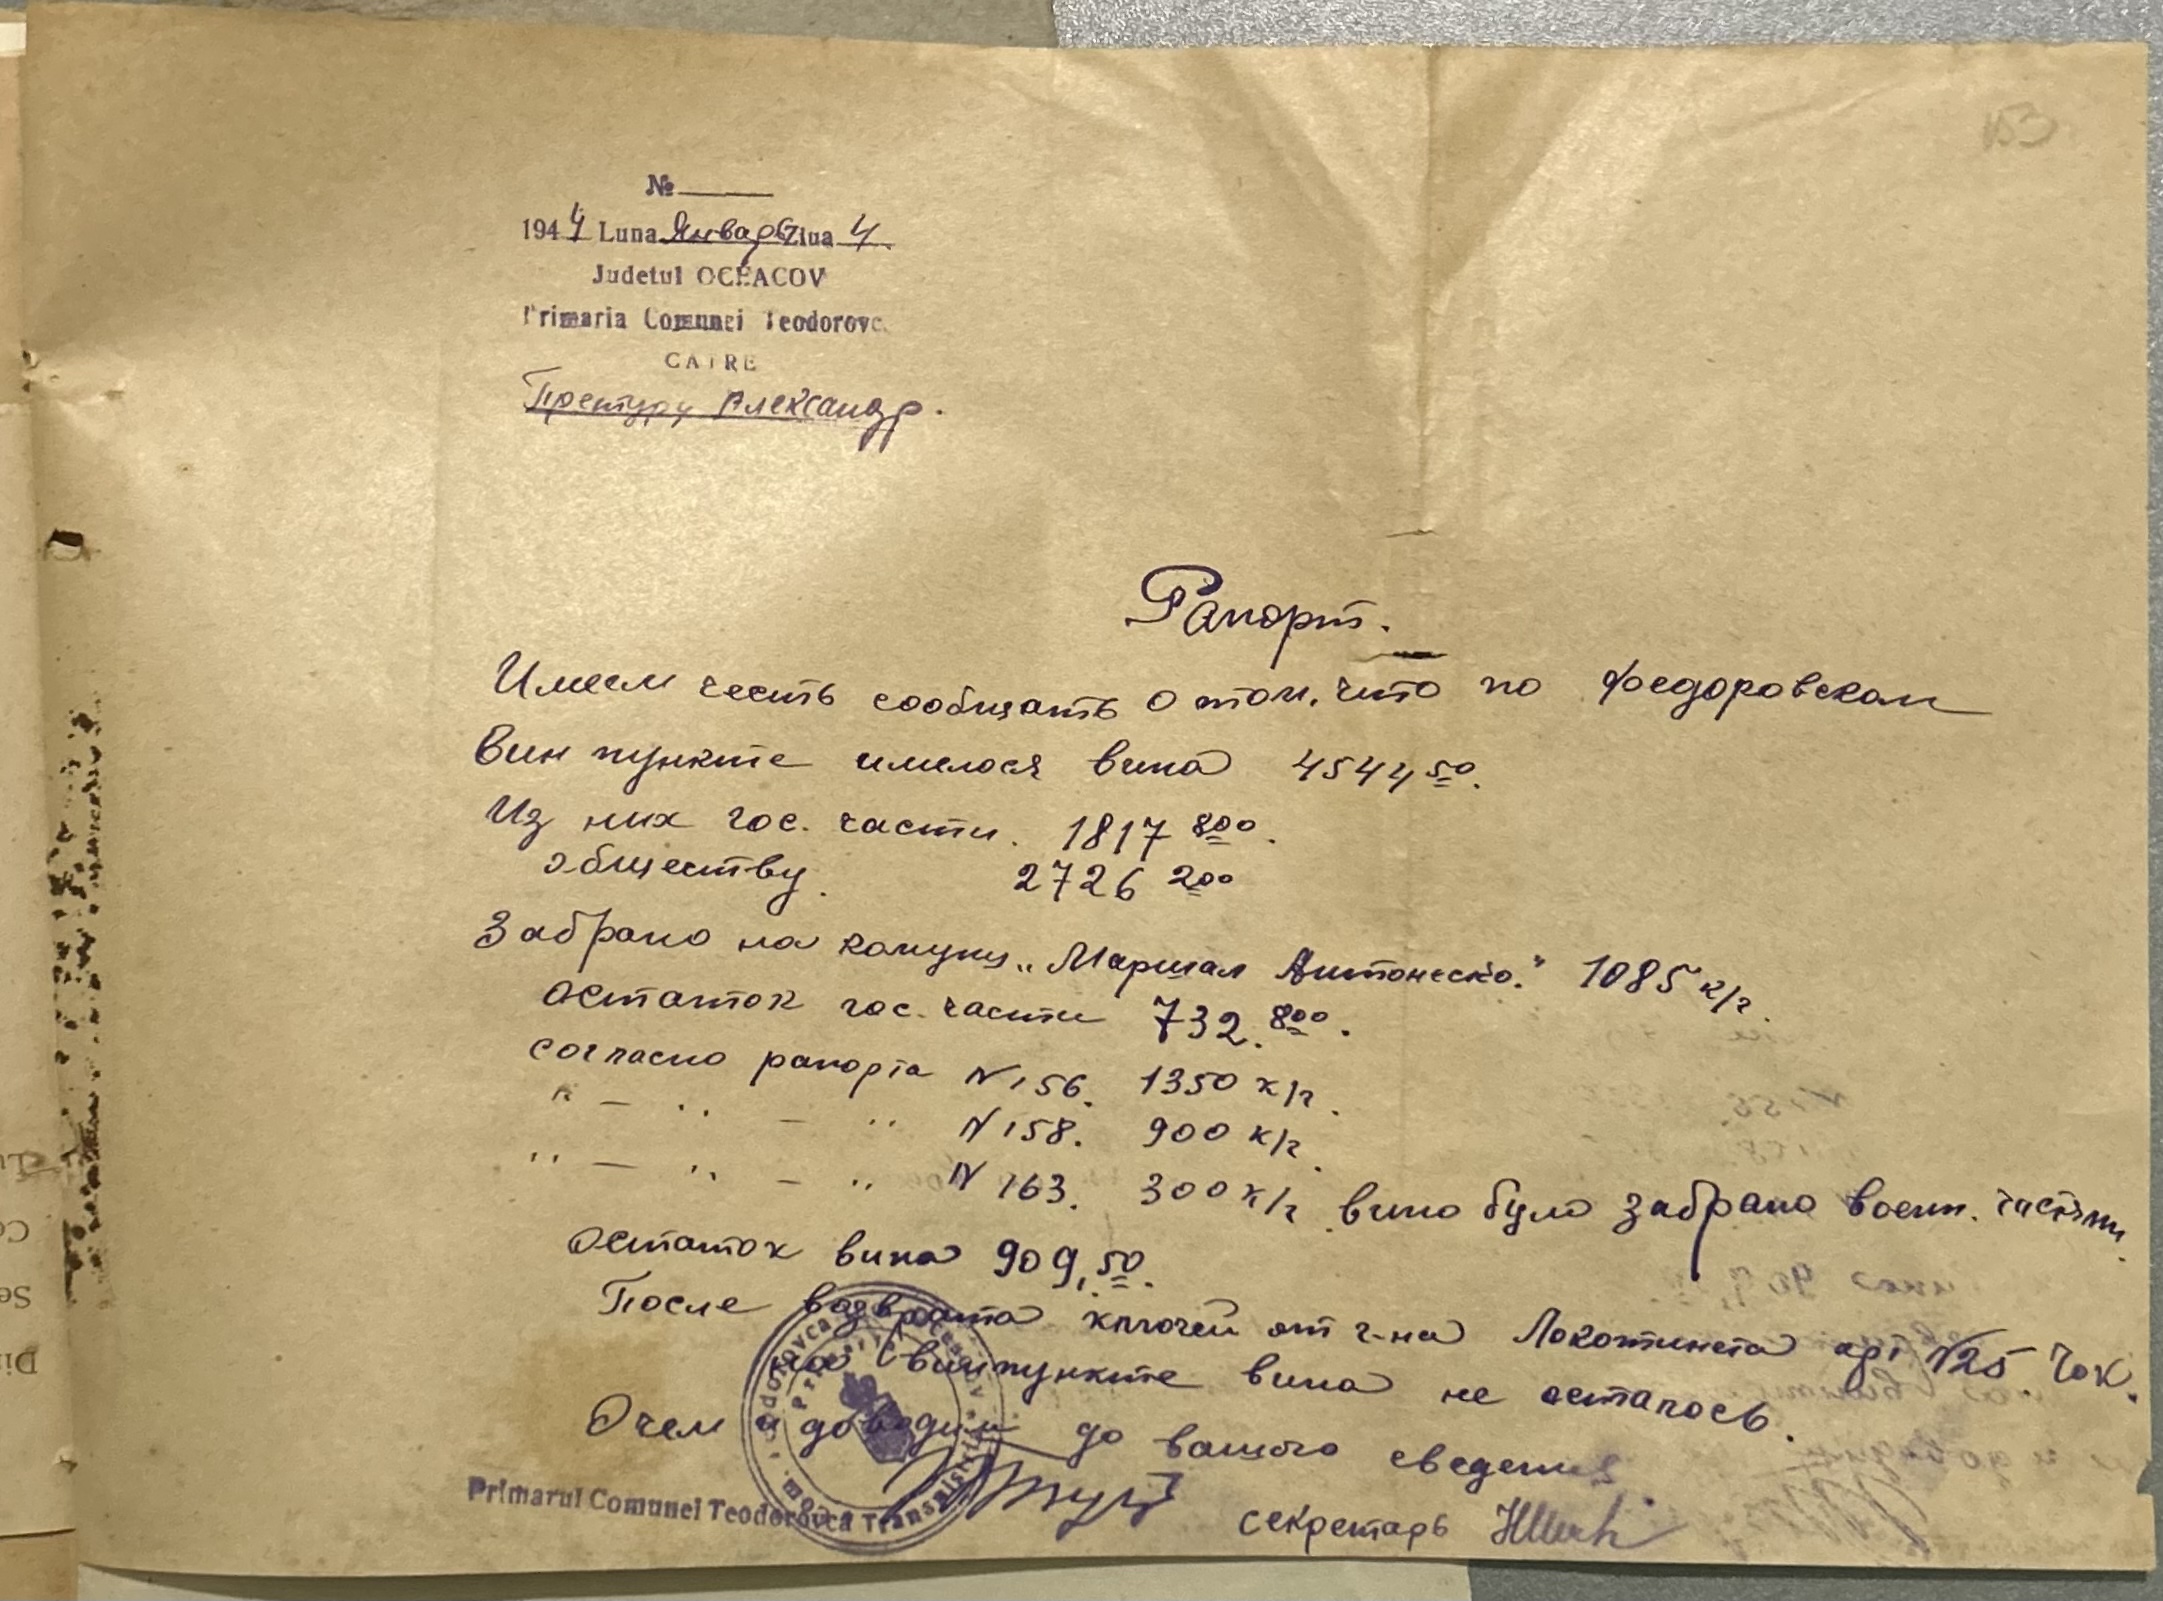 153
№
1944 Luna Январь Ziua 4
Judetul OCEACOV
Primaria Comunei Teodorovc
CATRE
Претуру Александр.
Рапорт.
Имеем честь сообщать о том, что по Федоровском
вин пункте имелося вина 4544 50.
Из них гос. части. 1817 800.
обществу. 2726 200
Забрано на комуну „Маршал Антонеско." 1085 к/г.
остаток гос. части 732. 800.
согласно рапорта N 156. 1350 к/г.
" — " — " N 158. 900 к/г.
" — " — " N 163. 300 к/г вино было забрано воен. частями.
Остаток вина 909, 50.
После возврата ключей от г-на Локотинета арт N25
на винпункте вина не осталось.
О чем и доводим до вашего сведения
Primarul Comunei Teodorovca
Transnistria
секретарь